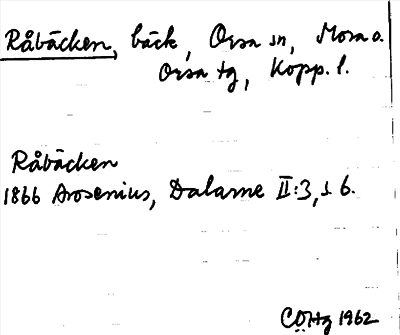 Råbäcken, bäck, Orsa sn, Mora o.
Orsa tg, Kopp. l.
Råbäcken
1866 Arosenius, Dalarne II:3, s 6.
CÖHg 1962